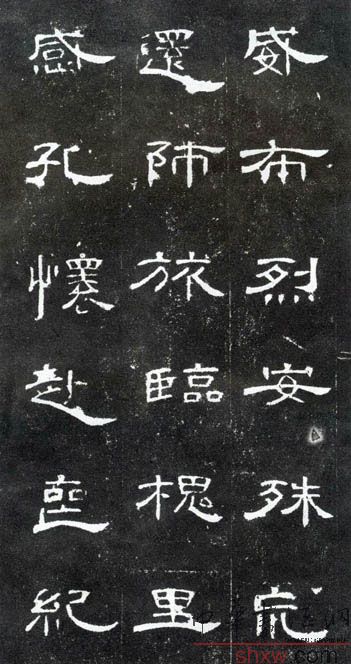 威布烈安殊巟
還師旅臨槐里
感孔懷赴喪紀
shxw